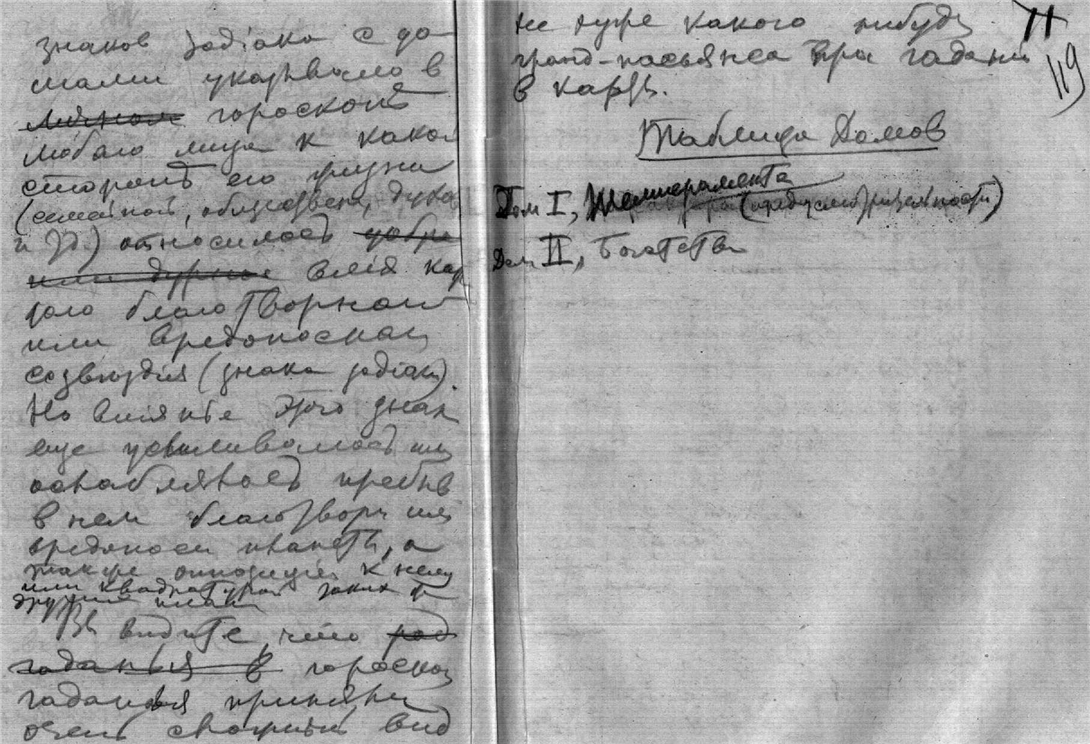 знаков зодіака с до
мами указывало в
личном гороскопѣ
любого лица к какой
сторонѣ его жизни
(семейной, обществен, духов
и т.д.) относилось добро
или дурное влія
того благотворнаго
или вредоноснаго
созвѣздія (знака зодіака).
Но вліяніе этого знак
еще усиливалось или
ослаблялось пребыв
в нем благотворн или
вредоносн планеты, а
также оппозиціей к нему
или квадратурой таких же
других план
Вы видите, что
гаданья в гороскоп
гаданья приняли
очень сложный вид
не хуже какого нибудь
гранд-пасьянса при гадании
в карты.
119
Таблица Домов
Дом I, Темперамента
Дом II, Богатства